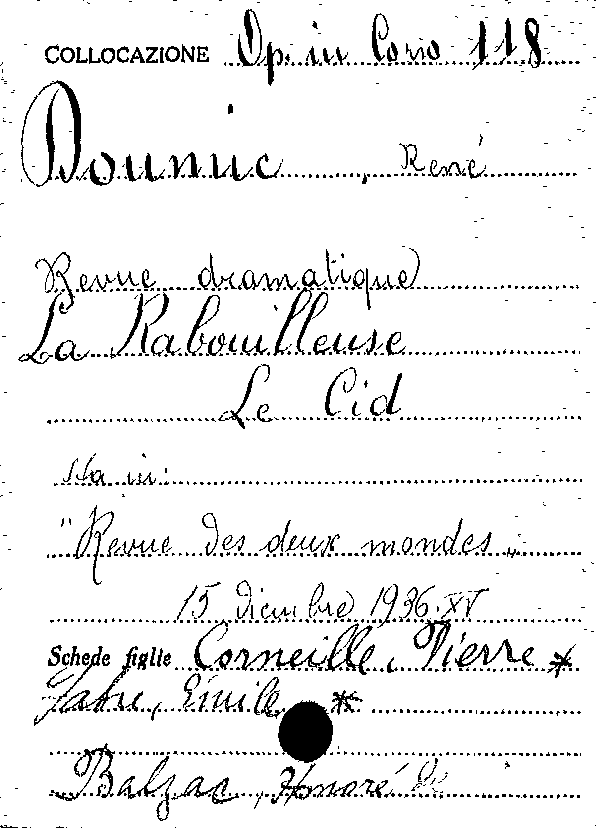 COLLOCAZIONE Op. in Corso 118
Doumic, René
Revue dramatique
La Rabouilleuse
Le Cid
Sta in:
"Revue des deux mondes„
15 dicembre 1936·XV
Schede figlie Corneille, Pierre *
Fabre, Émile *
Balzac, Honoré de